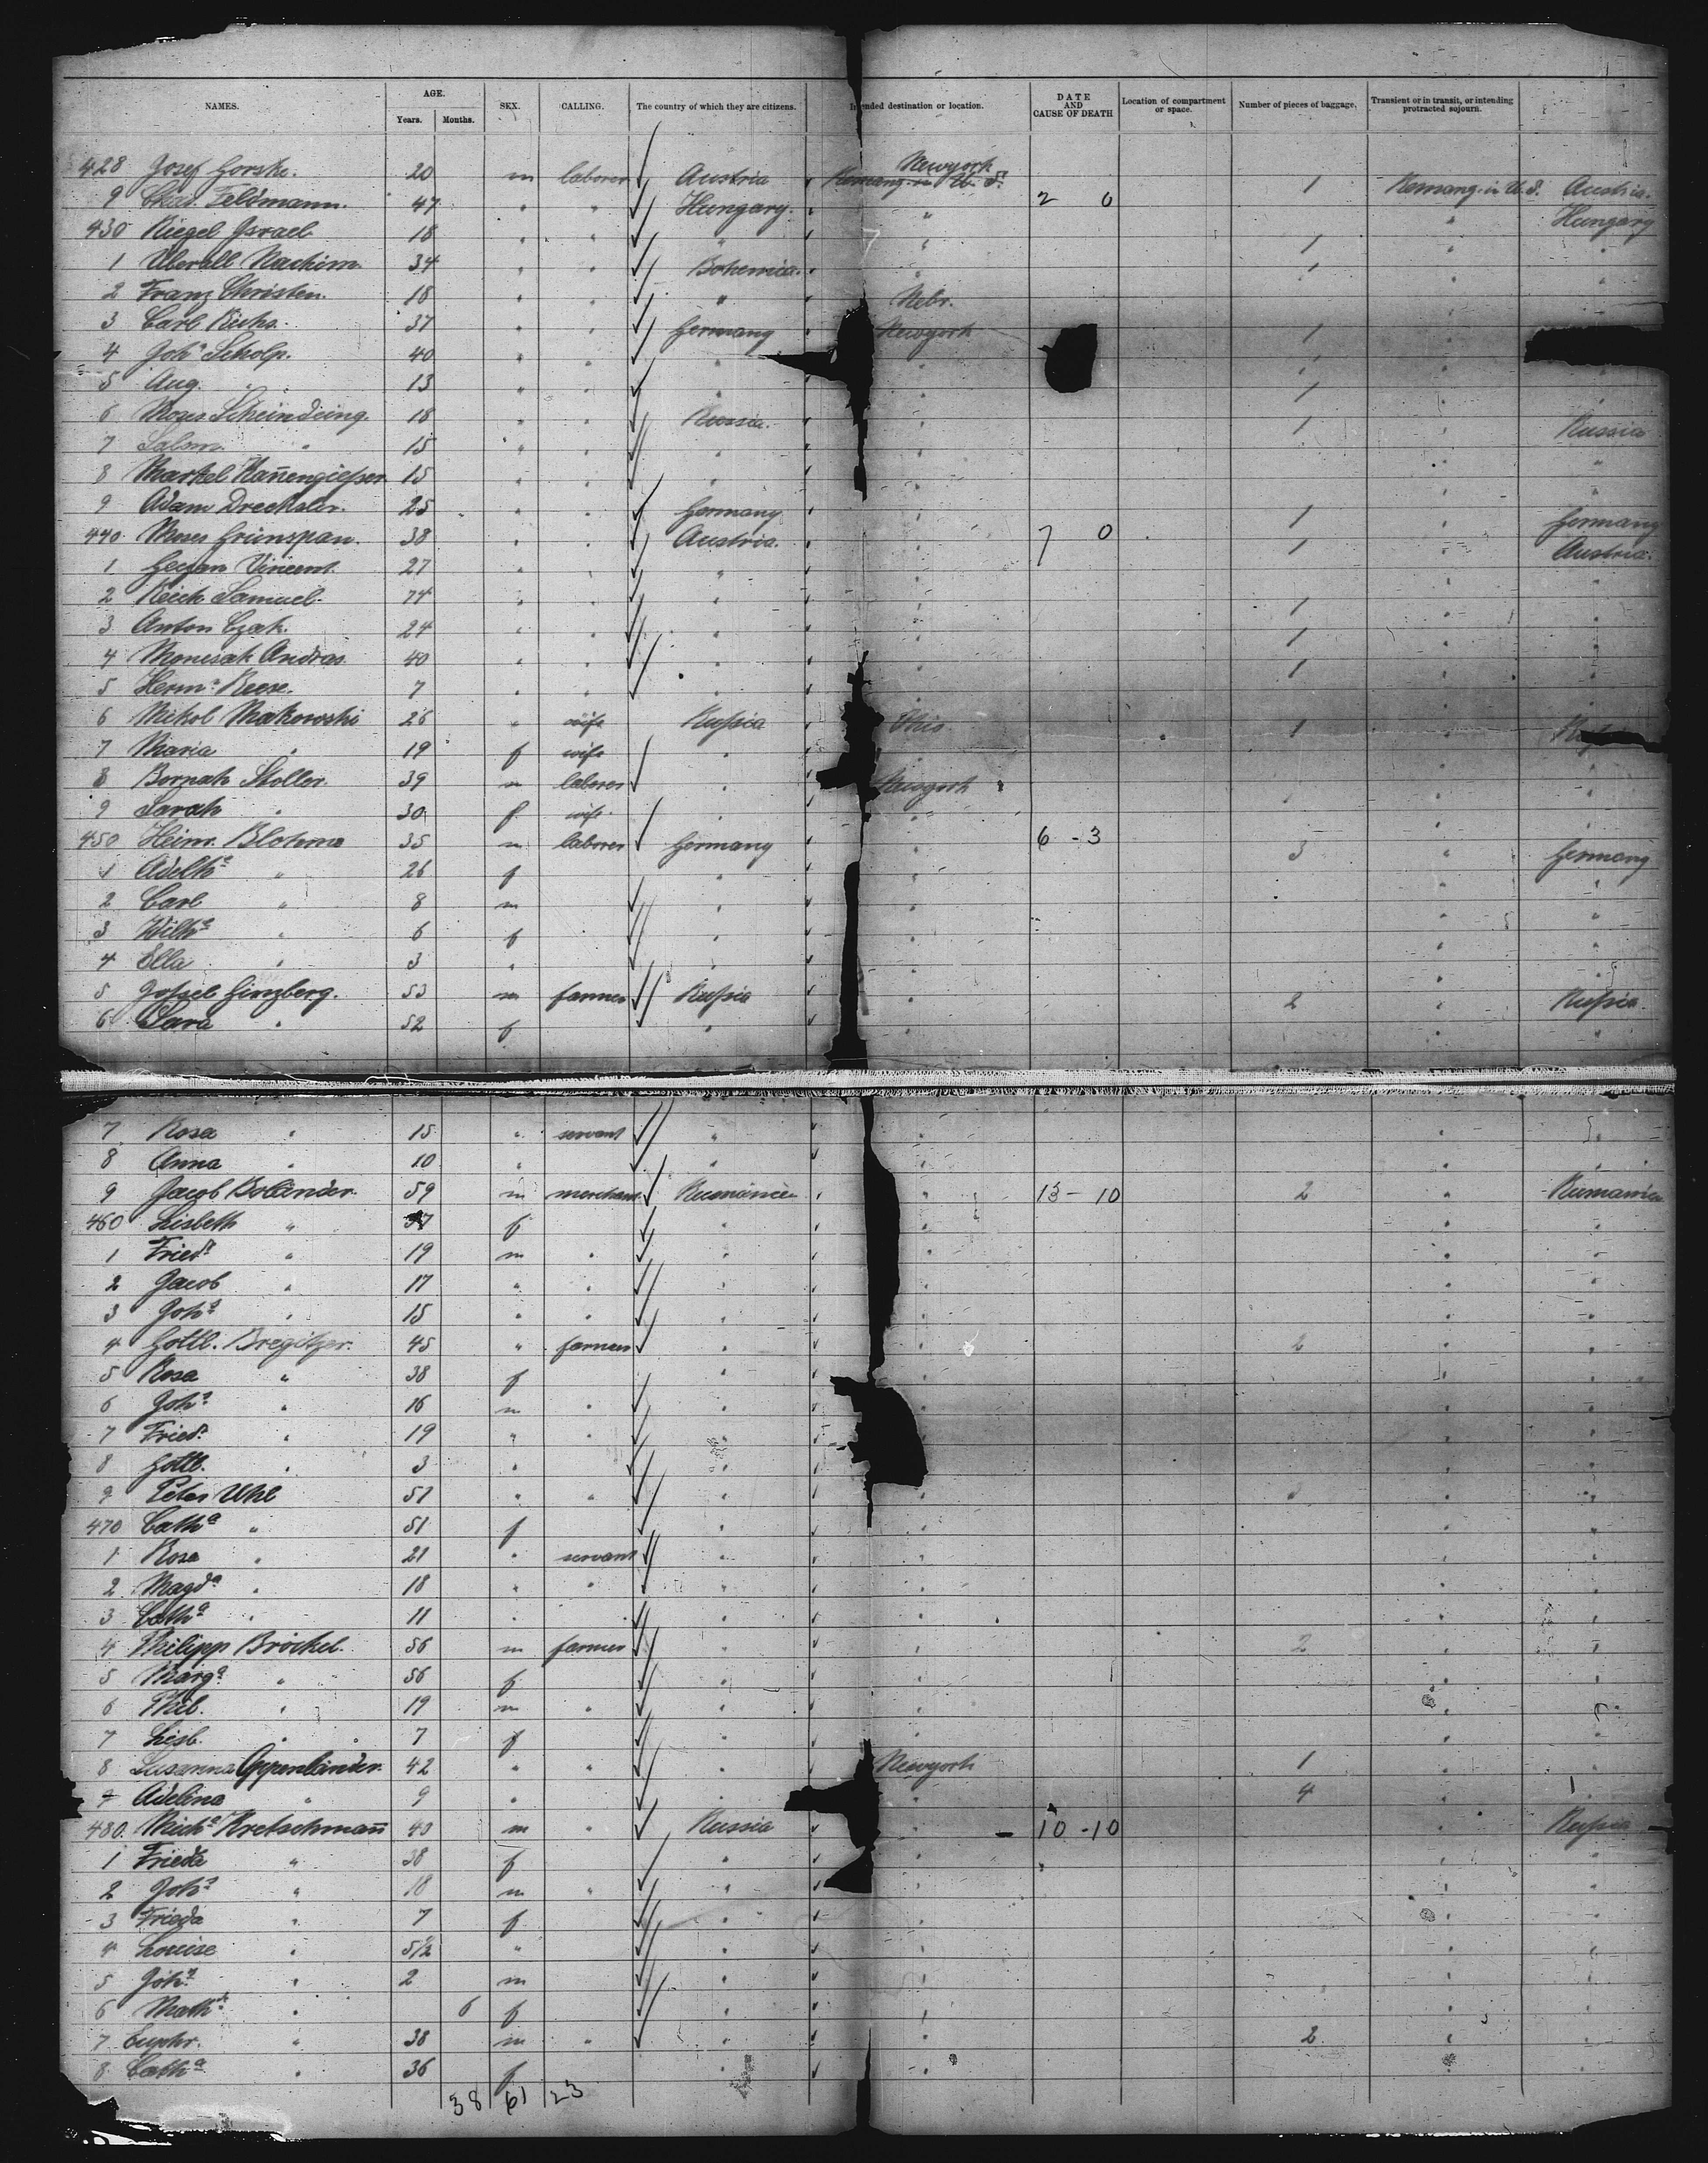 NAMES. AGE. SEX. CALLING. The country of which they are citizens. Intended destination or location. DATE AND CAUSE OF DEATH Location of compartment or space. Number of pieces of baggage. Transient or in transit, or intending protracted sojourn.
Years. Months.
Newyork
428 Josef Gorske. 20 m laborer Austria U. S. 1 in U. S. Austria.
9 Feldmann. 47 " " Hungary. " 2 0 " Hungary
430 Riegel Israel 18 " " " " 1 " "
1 Uberall Nachim. 34 " " Bohemia. " 1 " "
2 Franz Christen. 18 " " " Nebr.
3 Carl 37 " " Germany Newyork 1 "
4 Joh.ⁿ Scholp. 40 " " " " 1 " "
5 Aug. " 13 " " " " 1 " "
6 Moses 18 " " Russia. " 1 " Russia
7 Salom. " 15 " " " " " "
8 Markel Kan̄engiesser 15 " " " " " "
9 Adam Drechsler. 25 " " Germany " 1 " Germany
440 Moses Grünspan. 38 " " Austria. " 7 0 1 " Austria.
1 Vincent. 27 " " " " " "
2 Reich Samuel. 74 " " " " 1 " "
3 Anton Czak. 24 " " " " 1 " "
4 Andras 40 " " " " 1 " "
5 Herm.ⁿ Reese. 7 " " " " " "
6 Mikol Makowski 26 " wife Russia Ohio. 1 "
7 Maria " 19 f wife " " "
8 Stoller. 39 m laborer " Newyork " "
9 Sarah " 30 f wife " " " "
450 Heinr. Blohme 35 m laborer Germany " 6 - 3 3 " Germany
1 Adelh.ᵈ " 26 f " " " "
2 Carl " 8 m " " " "
3 Wilh.ᵃ " 6 f " " " "
4 Ella " 3 " " " " "
5 Jossel Ginzberg. 53 m farmer Russia " 2 " Russia.
6 Sara " 52 f " " " "
7 Rosa " 15 " servant " " " "
8 Anna " 10 " " " " "
9 Jacob Boländer. 59 m merchant Rumänien " 13 - 10 2 " Rumänien
460 Lisbeth " f " " " "
1 Fried.ʰ " 19 m " " " " "
2 Jacob " 17 " " " " " "
3 Joh.ⁿ " 15 " " " " " "
4 Gottl. Bregitzer. 45 " farmer " " 2 " "
5 Rosa " 38 f " " " "
6 Joh.ⁿ " 16 m " " " " "
7 Fried.ʰ " 19 " " " " " "
8 Gottl. " 3 " " " " "
9 Peter Uhl 51 " " " " " "
470 Cath.ᵃ " 51 f " " " "
1 Rosa " 21 " servant " " " "
2 Magd.ᵃ " 18 " " " " " "
3 Cath.ᵃ " 11 " " " " "
4 Philipp Bröckel. 56 m farmer " " 2 " "
5 Marg.ᵃ " 56 f " " " "
6 Phil. " 19 m " " " " "
7 Lisb. " 7 f " " " "
8 Susanna Oppenländer. 42 " " " Newyork 1 " "
9 Adelina " 9 " " " 4 " 1
480. Mich.ᵃ Kretschman̄ 40 m " Russia " - 10 - 10 " Russia
1 Frieda " 38 f " " " "
2 Joh.ⁿ " 18 m " " " " "
3 Frieda " 7 f " " " "
4 Louise " 5½ " " " " "
5 Joh.ⁿ " 2 m " " " "
6 Math.ᵈᵉ " 6 f " " " "
7 Euphr. " 38 m " " " 2 " "
8 Cath.ᵃ " 36 f " " " "
38 61 23